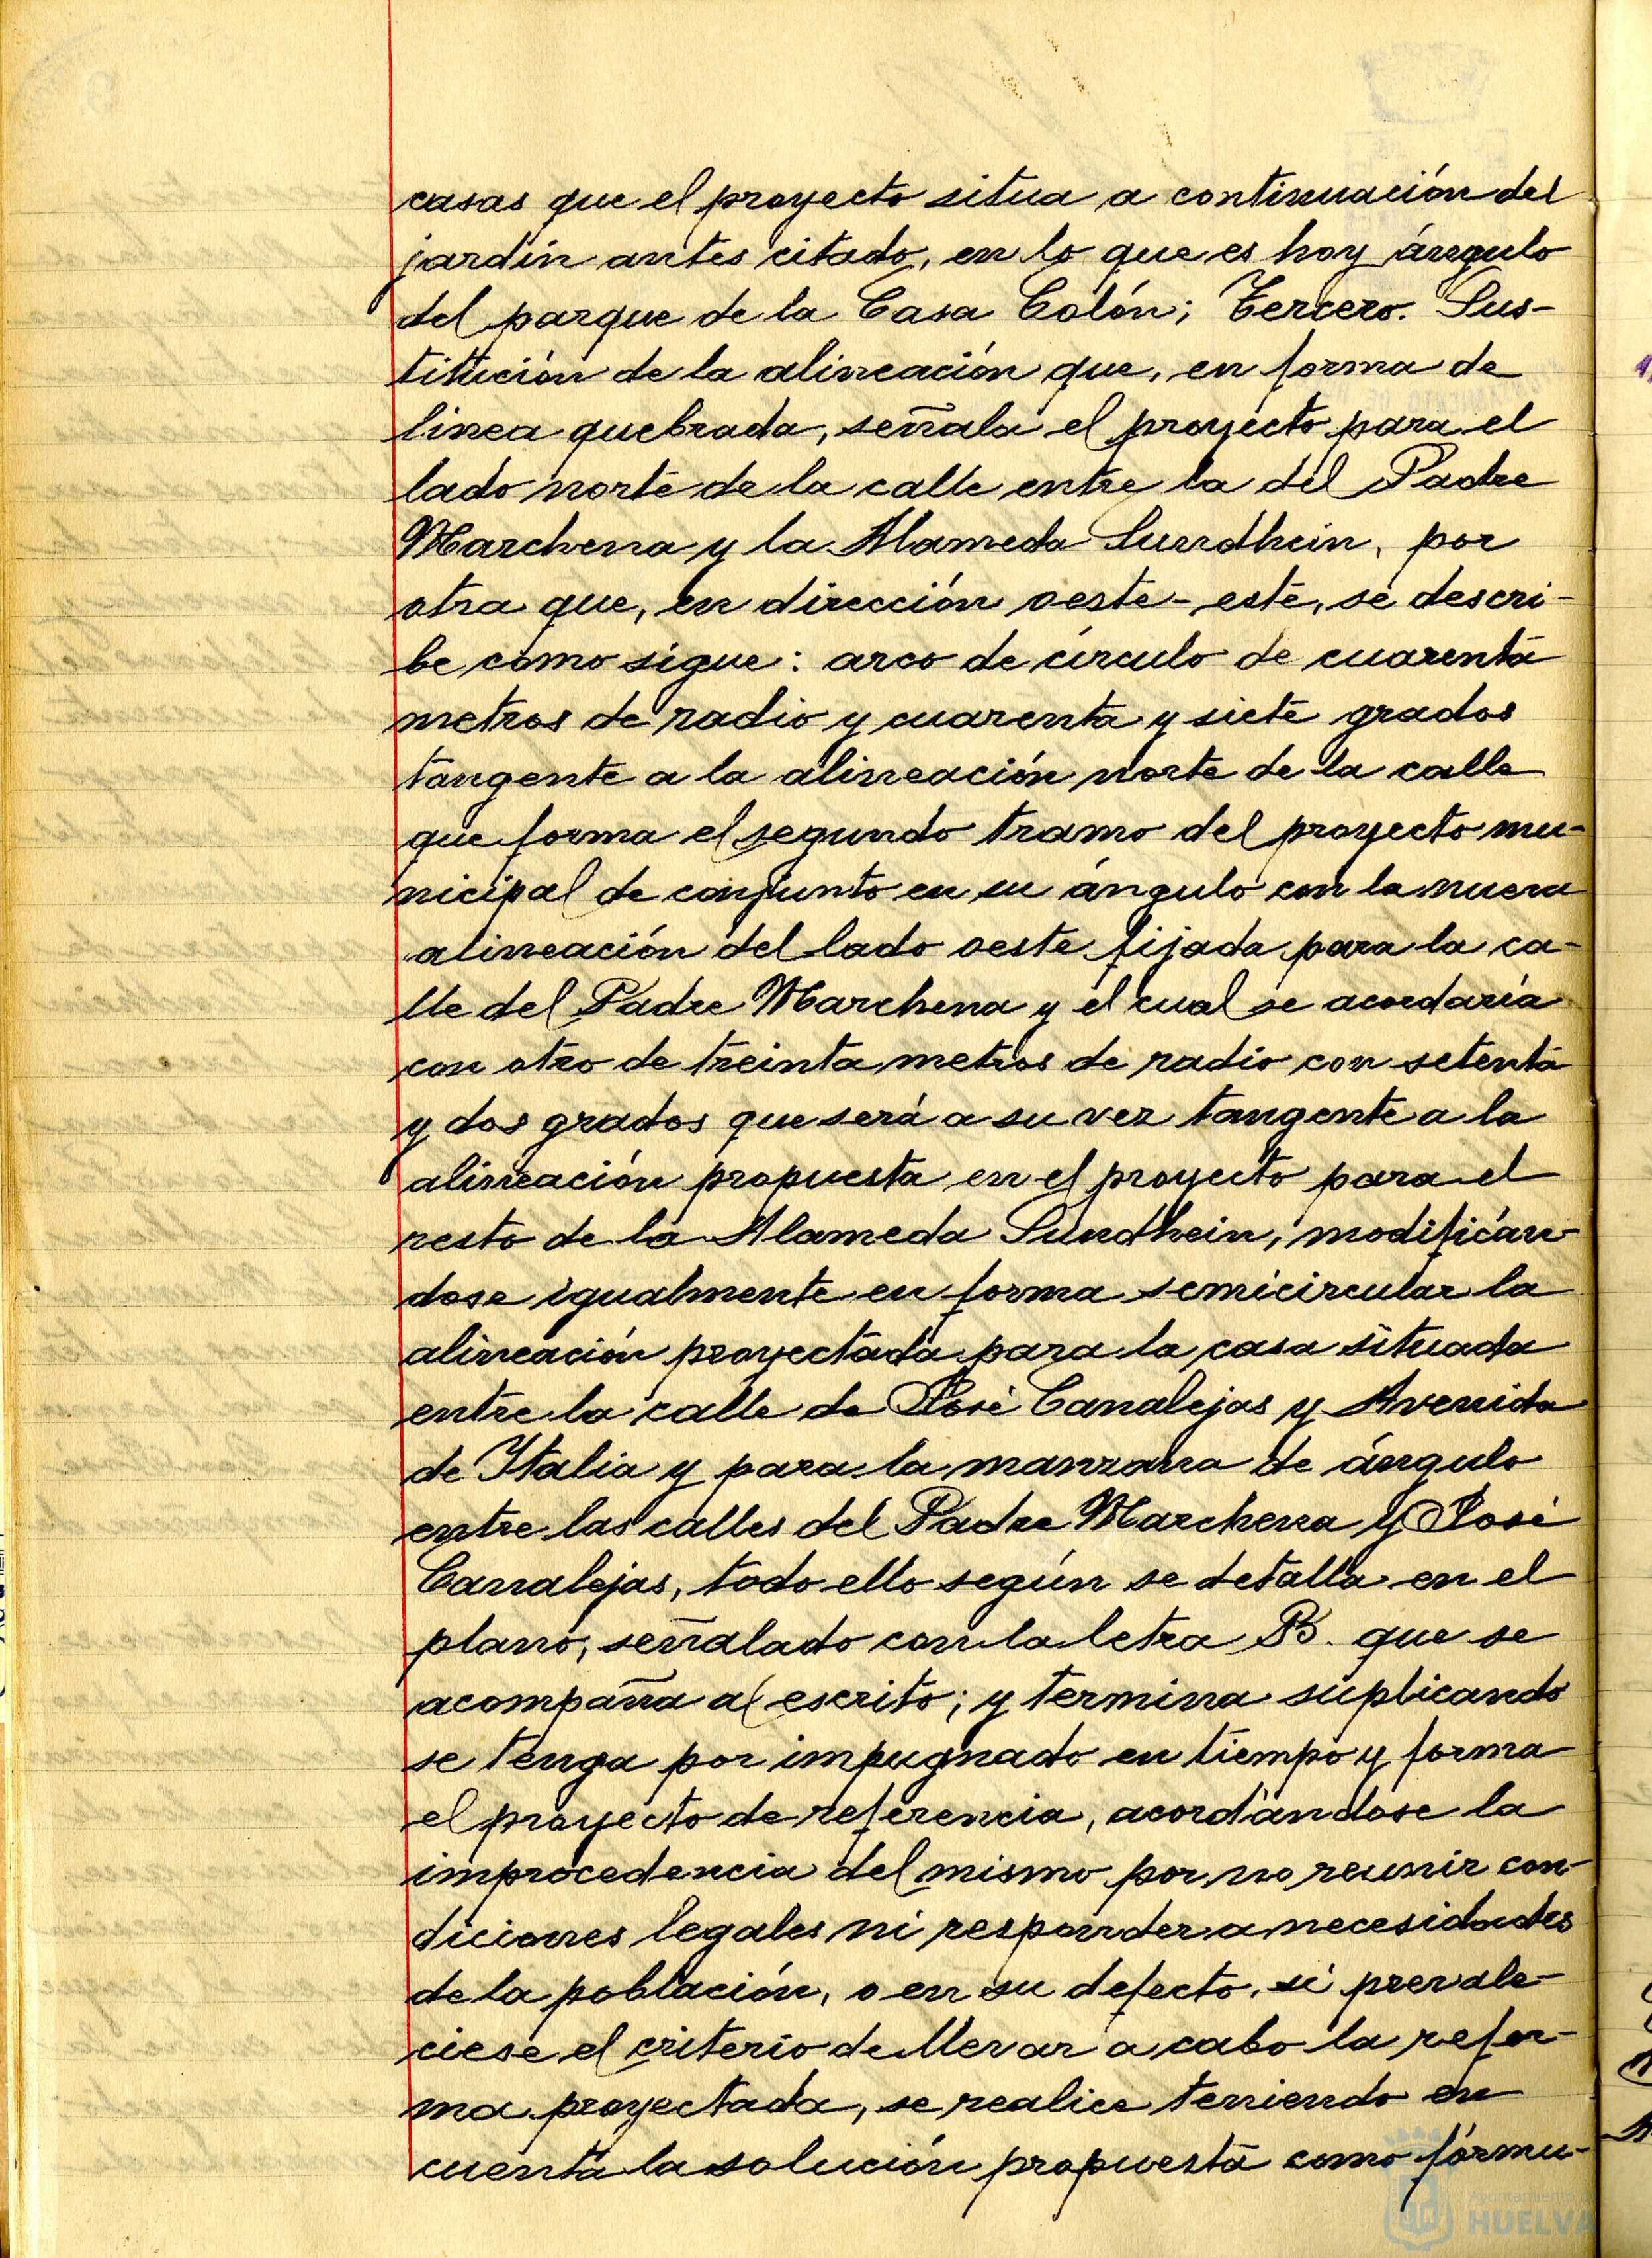 casas que el proyecto situa a continuación del
jardín antes citado, en lo que es hoy ángulo
del parque de la Casa Colón; Tercero. Sus-
titución de la alineación que, en forma de
linea quebrada, señala el proyecto para el
lado norte de la calle entre la del Padre
Marchena y la Alameda Sundhein, por
otra que, en dirección oeste-este, se descri-
be como sigue: arco de círculo de cuarenta
metros de radio y cuarenta y siete grados
tangente a la alineación norte de la calle
que forma el segundo tramo del proyecto mu-
nicipal de conjunto en su ángulo con la nueva
alineación del lado oeste fijada para la ca-
lle del Padre Marchena y el cual se acordaría
con otro de treinta metros de radio con setenta
y dos grados que será a su vez tangente a la
alineación propuesta en el proyecto para el
resto de la Alameda Sundhein, modificán-
dose igualmente en forma semicircular la
alineación proyectada para la casa situada
entre la calle de José Canalejas y Avenida
de Italia y para la manzana de ángulo
entre las calles del Padre Marchena y José
Canalejas, todo ello según se detalla en el
plano, señalado con la letra B. que se
acompaña al escrito; y termina suplicando
se tenga por impugnado en tiempo y forma
el proyecto de referencia, acordándose la
improcedencia del mismo por no reunir con-
diciones legales ni responder a necesidades
de la población, o en su defecto, si prevale-
ciese el criterio de llevar a cabo la refor-
ma proyectada, se realice teniendo en
cuenta la solución propuesta como fórmu-
Ayuntamiento de
HUELVA